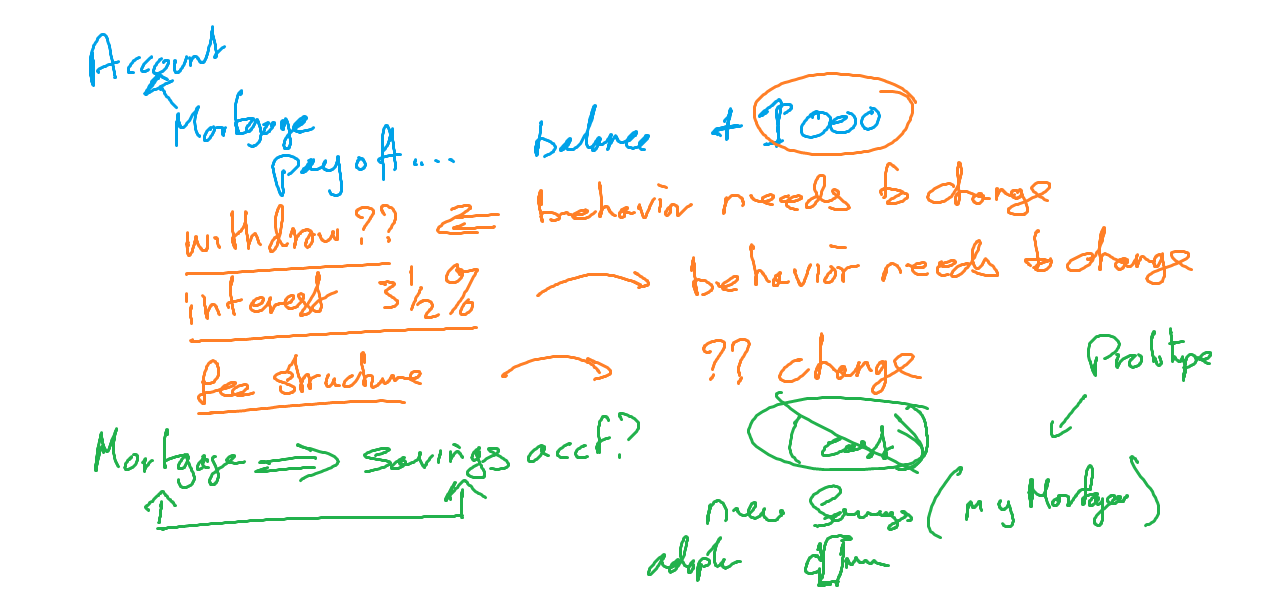 Account
Mortgage
payoff.... balance + 1000
withdraw ?? <= behavior needs to change
interest 3 1/2 % behavior needs to change
fee structure ?? change
Prototype
Mortgage => savings acct? (cast)
new Savings (my Mortgage)
adapter